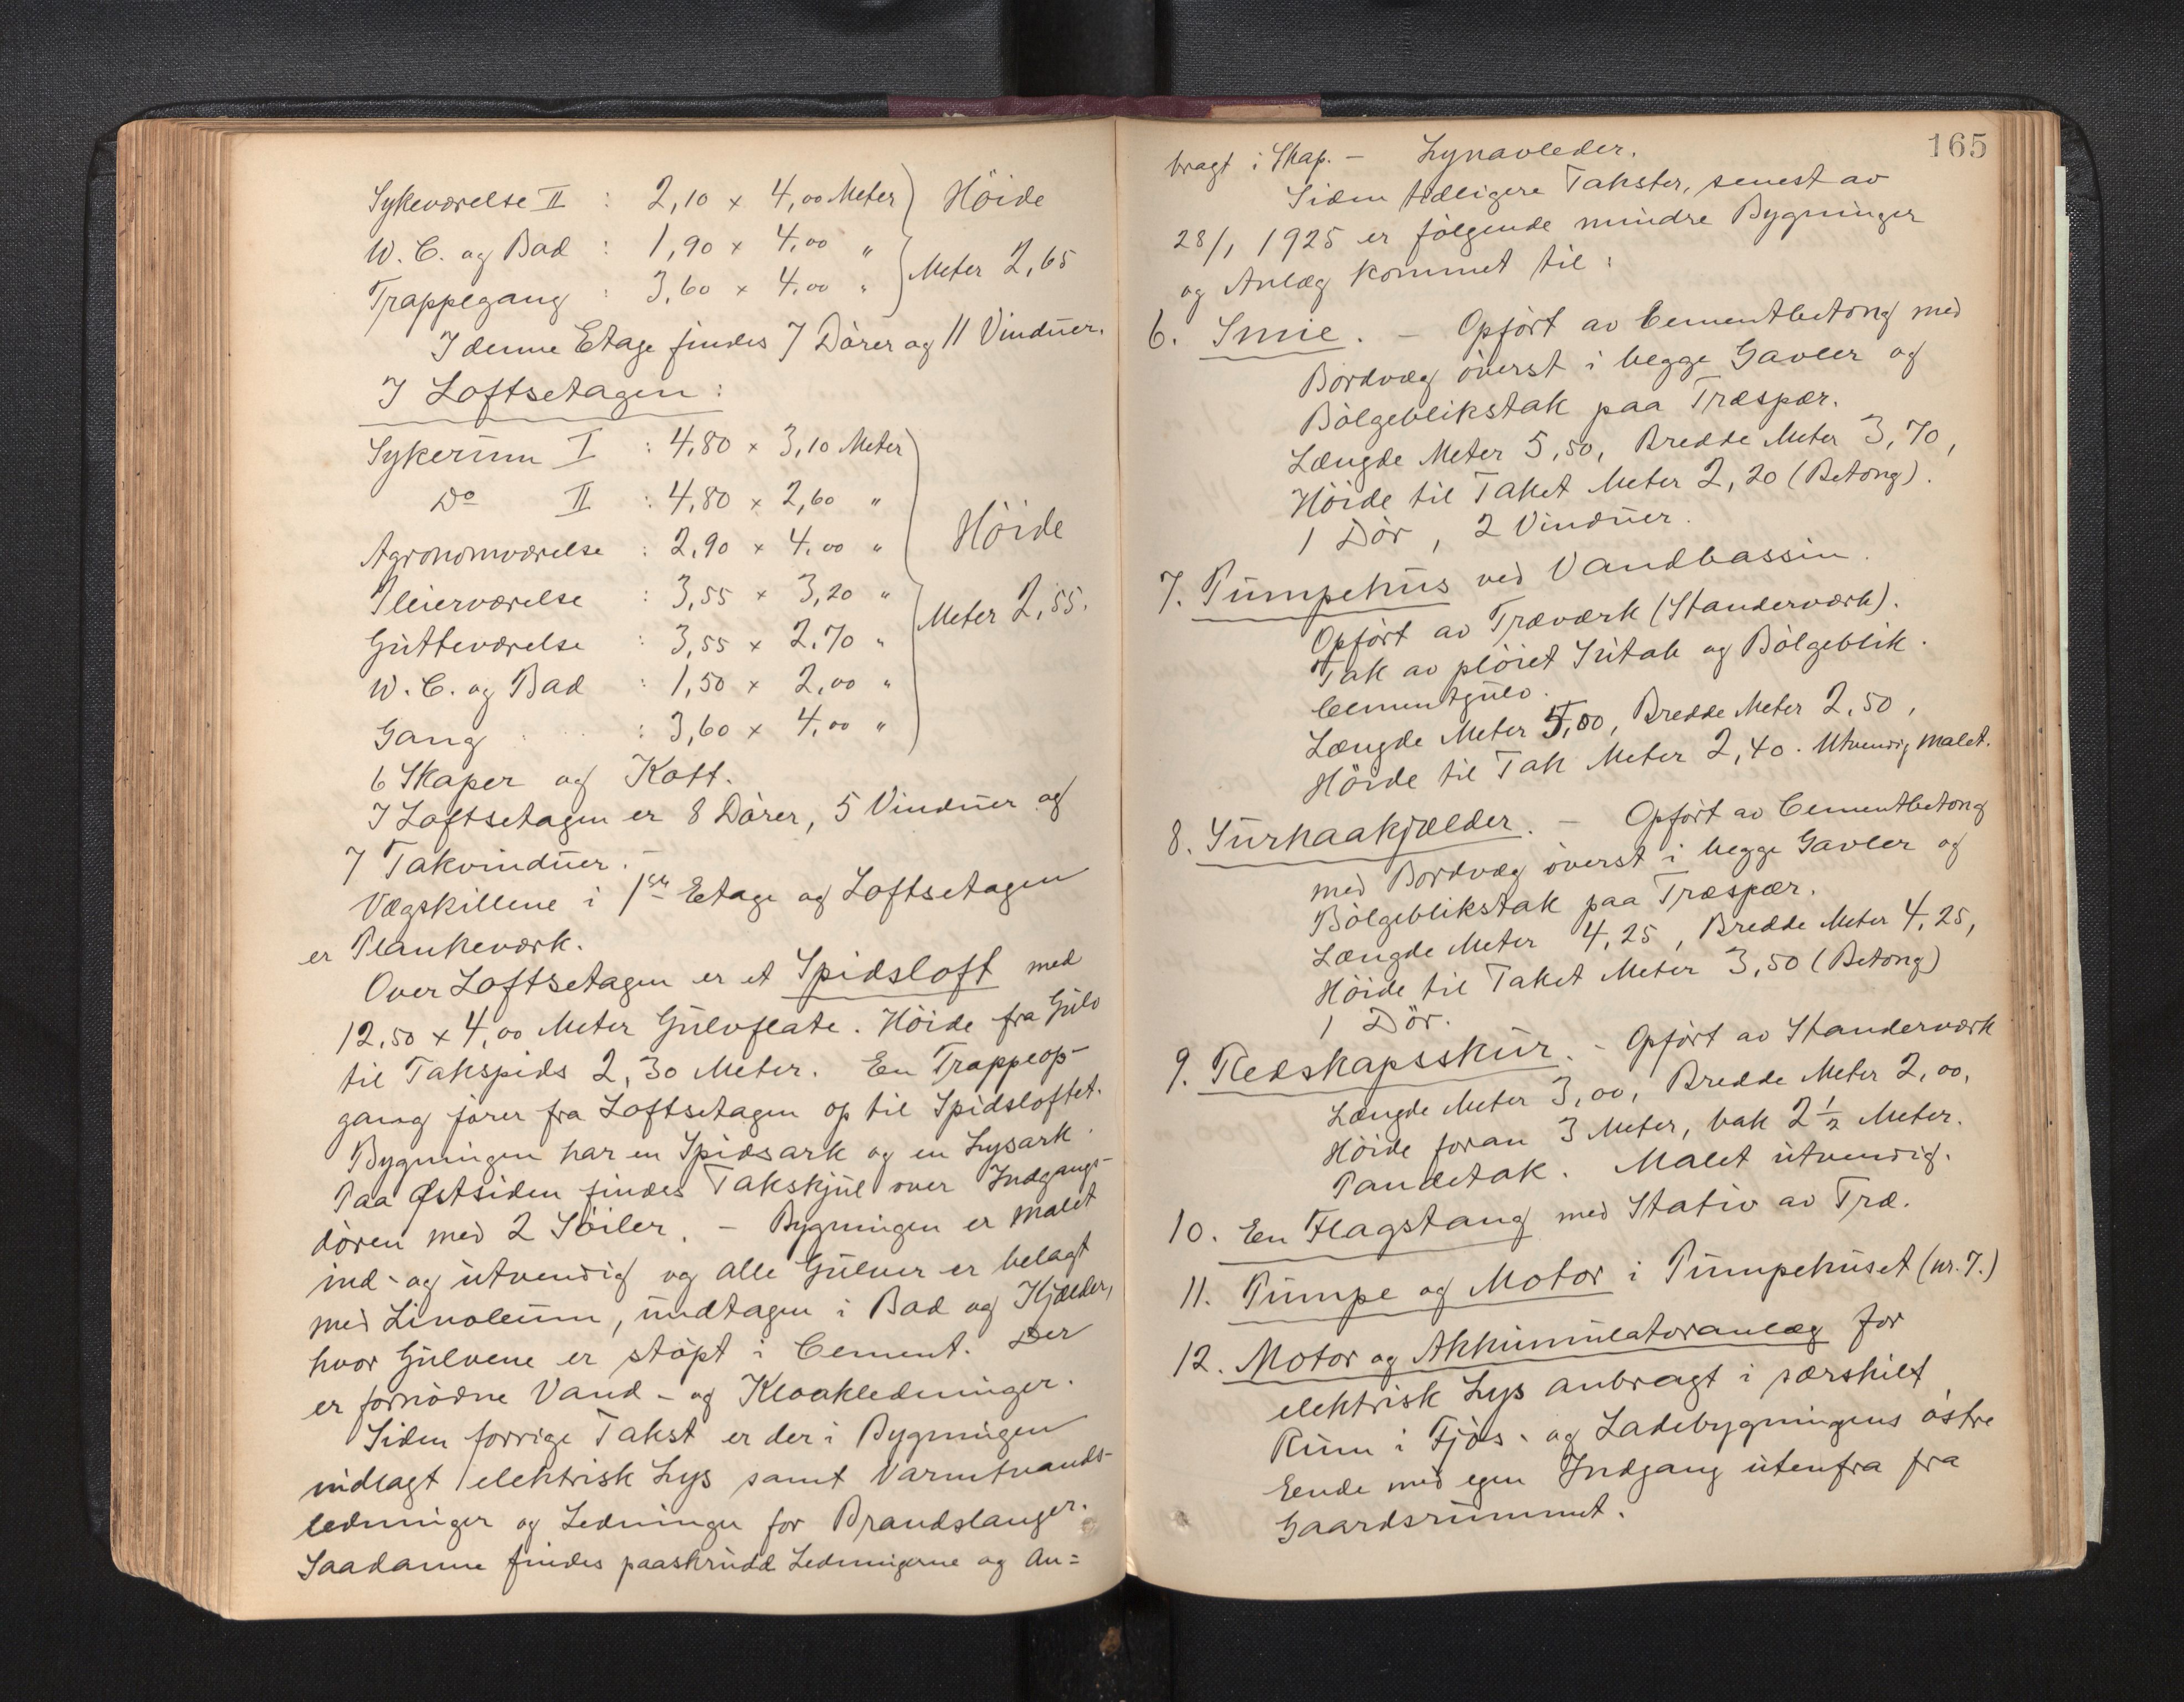 Sykeværelse II : 2,10 x 4,00 Meter } Höide
W. C. og Bad : 1,90 x 4,00 "
Trappegang : 3,60 x 4,00 " } Meter 2,65
I denne Etage findes 7 Dörer og 11 Vinduer.
I Loftsetagen :
Sykerum I : 4,80 x 3,10 Meter
Do II : 4,80 x 2,60 "
Agronomværelse : 2,90 x 4,00 " } Höide
Pleierværelse : 3,55 x 3,20 "
Gutteværelse : 3,55 x 2,70 " } Meter 2,55.
W. C. og Bad : 1,50 x 2,00 "
Gang : 3,60 x 4,00 "
6 Skaper og Kott.
I Loftsetagen er 8 Dörer, 5 Vinduer og
7 Takvinduer. -
Vægskillene i 1ste Etage og Loftsetagen
er Plankeværk.
Over Loftsetagen er et Spidsloft med
12,50 x 4,00 Meter Gulvflate. Höide fra Gulv
til Takspids 2,30 Meter. En Trappeop-
gang förer fra Loftsetagen op til Spidsloftet.
Bygningen har en Spidsark og en Lysark.
Paa Østsiden findes Takskjul over Indgangs-
dören med 2 Söiler. - Bygningen er malet
ind- og utvendig og alle Gulver er belagt
med Linoleum, undtagen i Bad og Kjælder,
hvor Gulvene er stöpt i Cement. Der
er fornödne Vand- og Kloakledninger.
Siden forrige Takst er der i Bygningen
indlagt elektrisk Lys samt Varmtvands-
ledninger og Ledninger for Brandslanger.
Saadanne findes paaskrudd Ledningerne og an=
165
bragt i Skap. - Lynavleder.
Siden tidligere Takster, senest av
28/1 1925 er følgende mindre Bygninger
og Anlæg kommet til :
6. Smie. - Opfört av Cementbetong med
Bordvæg överst i begge Gavler og
Bölgeblikstak paa Træspær.
Længde Meter 5,50, Bredde Meter 3,70,
Höide til Taket Meter 2,20 (Betong).
1 Dör, 2 Vinduer.
7. Pumpehus ved Vandbassin.
Opfört av Træværk (Standerværk).
Tak av plöiet Sutak og Bölgeblik.
Cementgulv.
Længde Meter 5,00, Bredde Meter 2,50,
Höide til Tak Meter 2,40. Utvendig malet.
8. Surhaakjælder. - Opfört av Cementbetong
med Bordvæg överst i begge Gavler og
Bölgeblikstak paa Træspær.
Længde Meter 4,25, Bredde Meter 4,25,
Höide til Taket Meter 3,50 (Betong)
1 Dör.
9. Redskapsskur. - Opfört av Standerværk
Længde Meter 3,00, Bredde Meter 2,00,
Höide foran 3 Meter, bak 2 1/2 Meter.
Pandetak. Malet utvendig.
10. En Flagstang med Stativ av Træ.
11. Pumpe og Motor i Pumpehuset (nr. 7.)
12. Motor og Akkumulatoranlæg for
elektrisk Lys anbragt i særskilt
Rum i Fjös- og Ladebygningens östre
Ende med egen Indgang utenfra fra
Gaardsrummet.